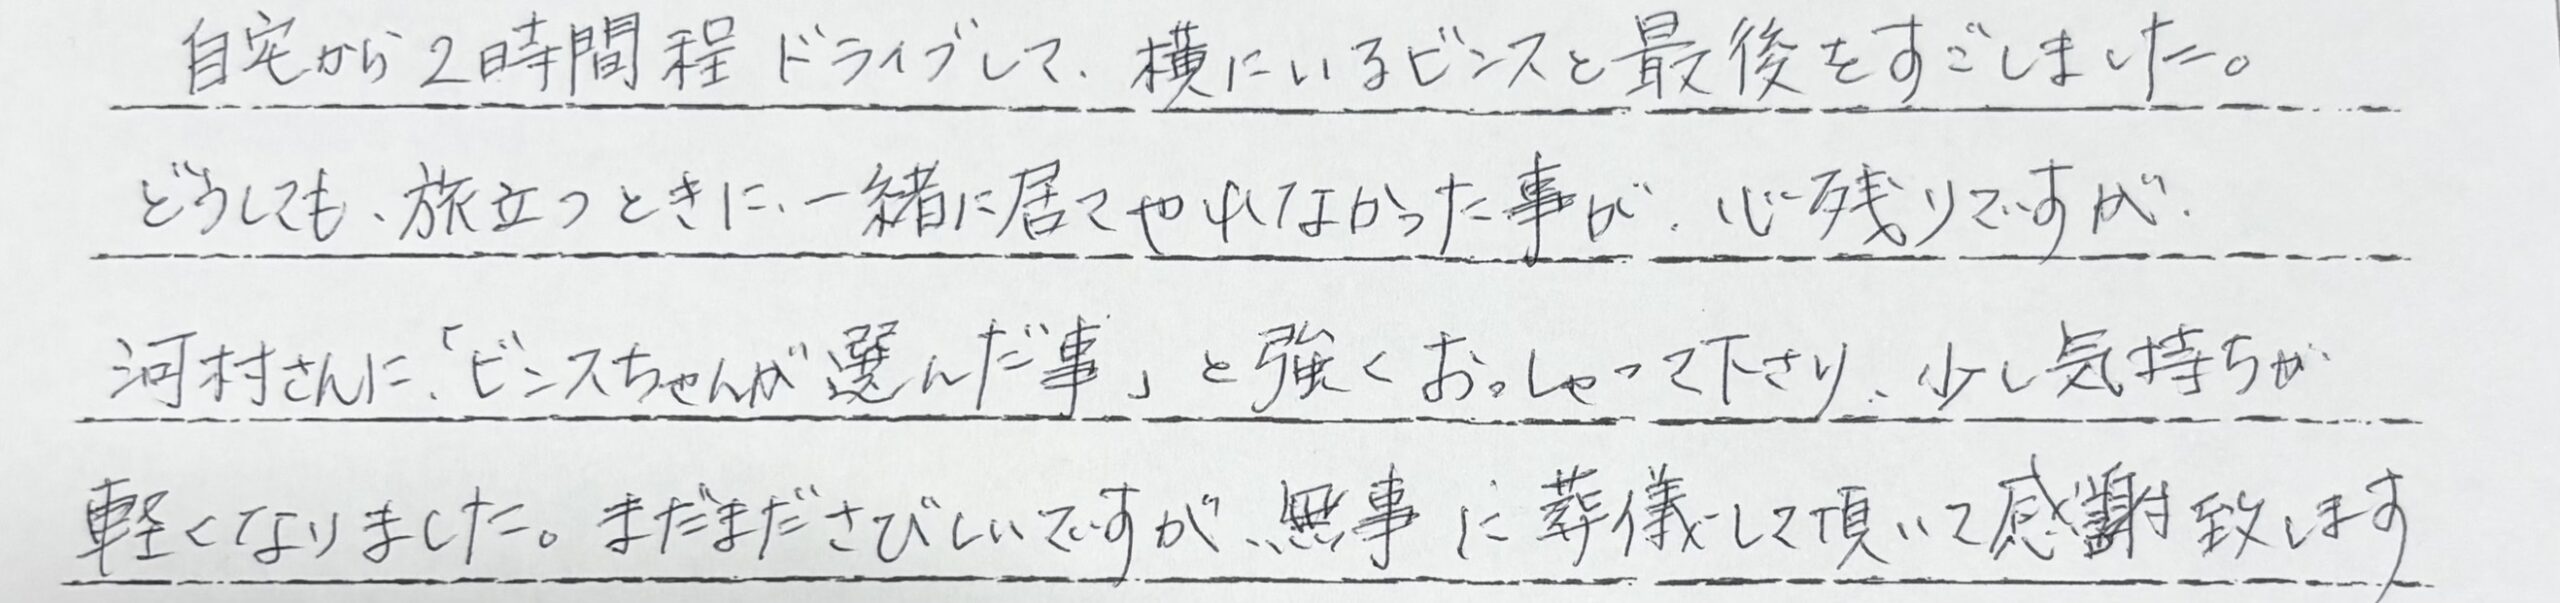 自宅から2時間程ドライブして、横にいるビンスと最後をすごしました。
どうしても、旅立つときに、一緒に居てやれなかった事が、心残りですが、
河村さんに、「ビンスちゃんが選んだ事」と強くおっしゃって下さり、少し気持ちが
軽くなりました。まだまださびしいですが、無事に葬儀して頂いて感謝致します